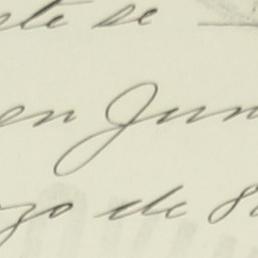 te se
en Jun
zo de 8